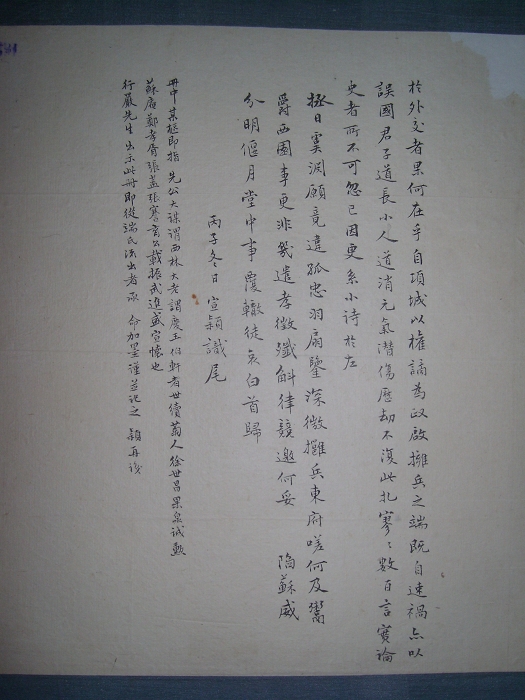 於外交者果何在乎自項城以權譎為政啟擁兵之端既自速禍亦以
誤國君子道長小人道消元氣潛傷歷劫不復此札寥寥數百言實論
史者所不可忽已因更系小诗於左
拯日虞淵願竟違孤忠羽扇鑒深微擁兵東府嗟何及鬻
爵西園事更非幾遣孝徵殲斛律競邀何妥陷蘇威
分明偃月堂中事覆轍徒哀白首歸
丙子冬日宣穎識尾
冊中某極即指先公大謀謂西林大老謂慶王伯軒者世續菊人徐世昌果泉诚勳
蘇庵鄭孝胥張蓋張謇育公載振武進盛宣懷也
行嚴先生出示此冊即從端氏流出者承命加墨謹並記之穎再識